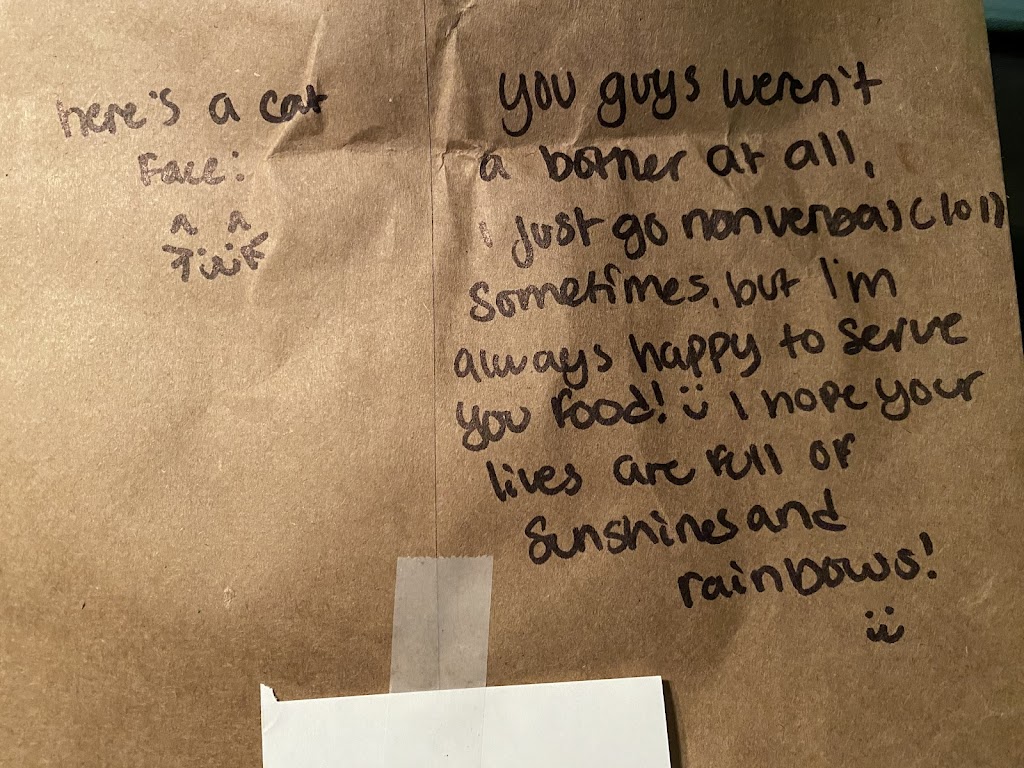 here's a cat
face:
you guys weren't
a bother at all,
i just go nonverbal (lol)
sometimes, but I'm
always happy to serve
you food! I hope your
lives are full of
sunshines and
rainbows!